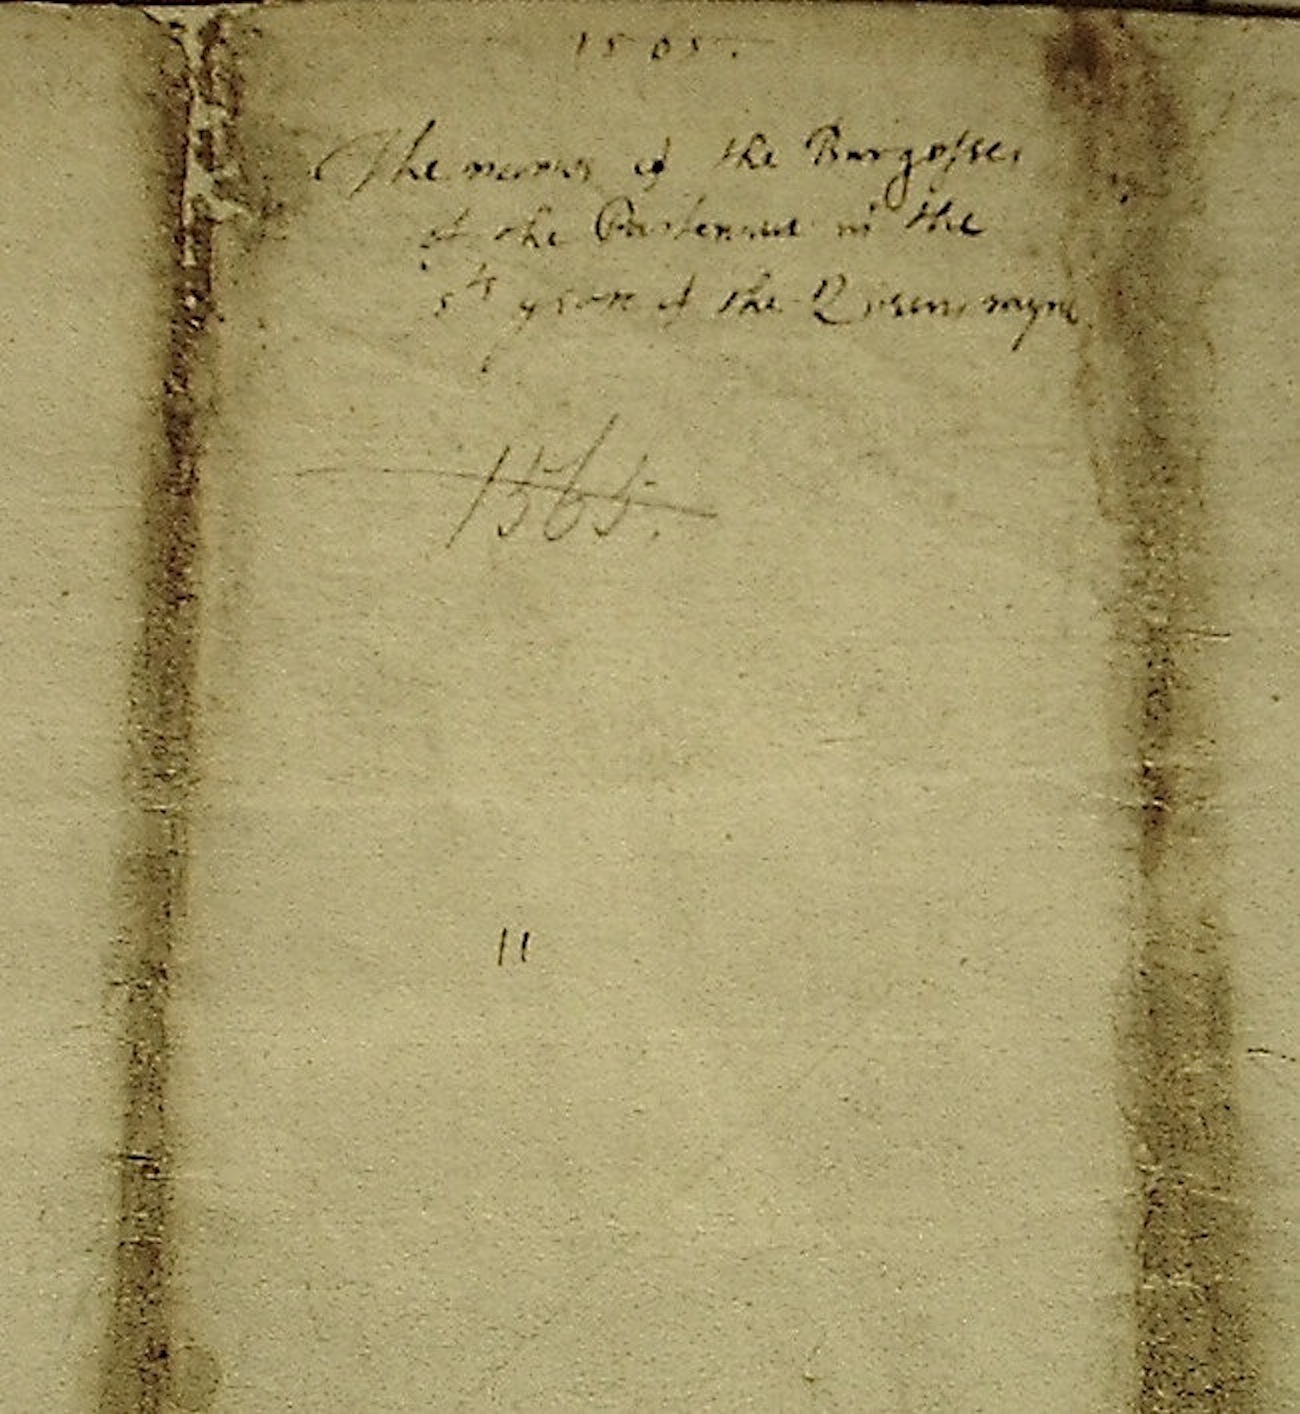 1565.
The names of the Burgesses
of the Parlement in the
5th yeare of the Queens rayne
1565.
11